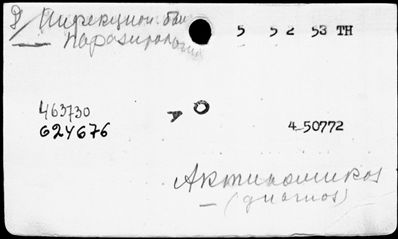 Инфекцион. бол
паразитология
5 5 2 53 TH
463730
624676
4-50772
Актиномикоз
(диагноз)